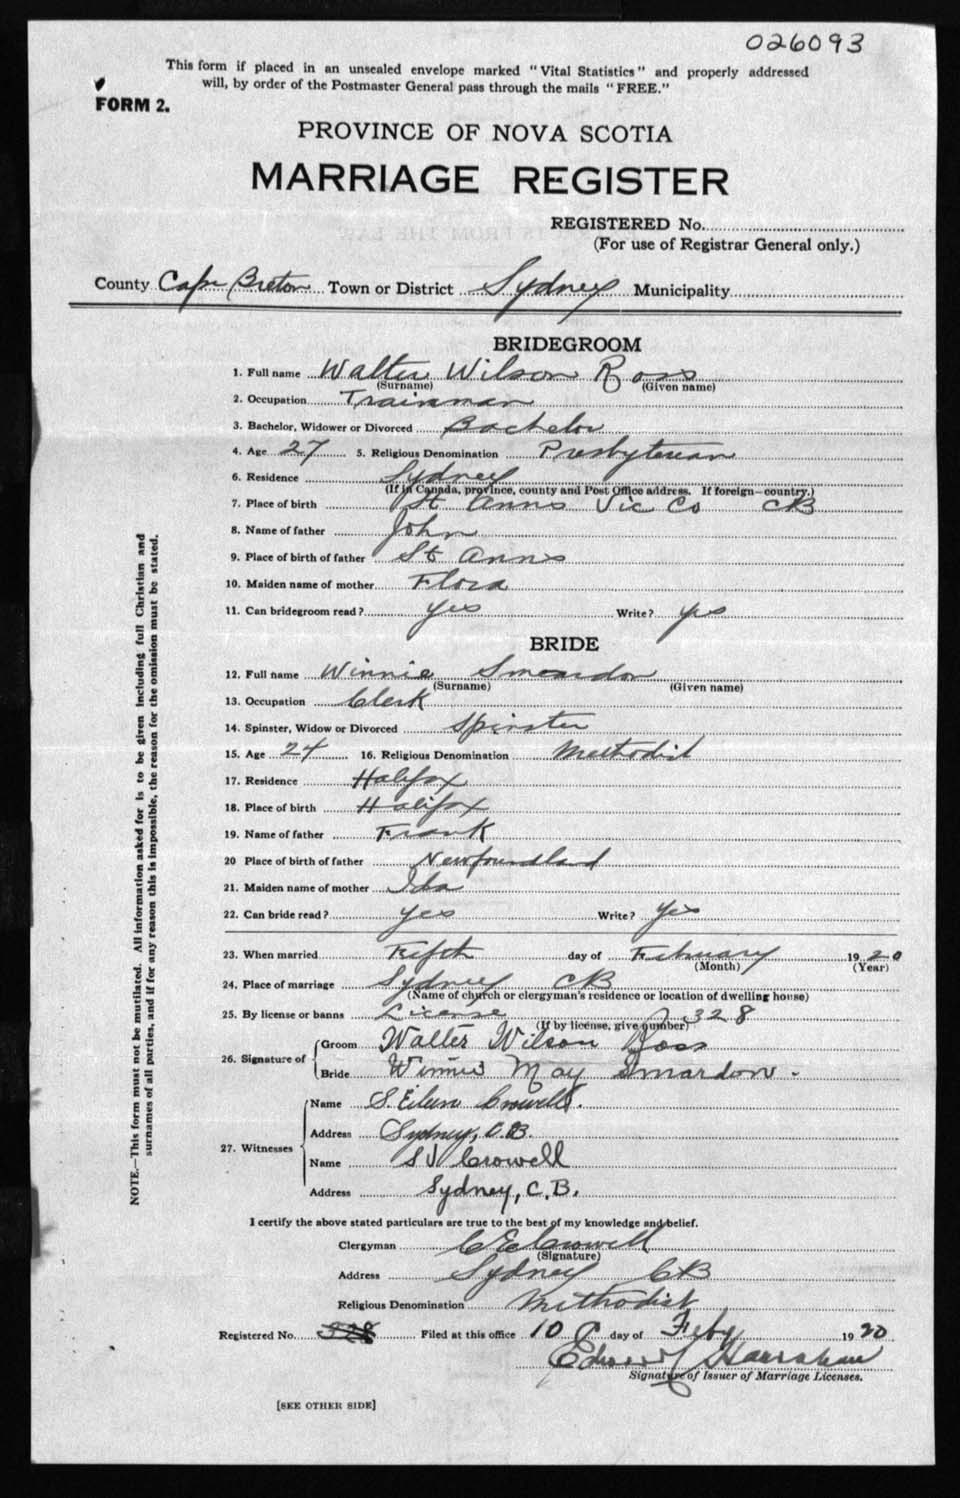 026093
This form if placed in an unsealed envelope marked "Vital Statistics" and properly addressed
will, by order of the Postmaster General pass through the mails "FREE."
FORM 2.
PROVINCE OF NOVA SCOTIA
MARRIAGE REGISTER
REGISTERED No.
(For use of Registrar General only.)
County Cape Breton Town or District Sydney Municipality
BRIDEGROOM
1. Full name Walter Wilson Ross
(Surname) (Given name)
2. Occupation Trainman
3. Bachelor, Widower or Divorced Bachelor
4. Age 27 5. Religious Denomination Presbyterian
6. Residence Sydney
(If in Canada, province, county and Post Office address. If foreign—country.)
7. Place of birth St Anns Vic Co CB
8. Name of father John
9. Place of birth of father St Anns
10. Maiden name of mother Flora
11. Can bridegroom read? yes Write? yes
BRIDE
12. Full name Winnie Smeardon
(Surname) (Given name)
13. Occupation Clerk
14. Spinster, Widow or Divorced Spinster
15. Age 24 16. Religious Denomination Methodist
17. Residence Halifax
18. Place of birth Halifax
19. Name of father Frank
20 Place of birth of father Newfoundland
21. Maiden name of mother Ida
22. Can bride read? yes Write? yes
23. When married Fifth day of February 1920
(Month) (Year)
24. Place of marriage Sydney CB
(Name of church or clergyman's residence or location of dwelling house)
25. By license or banns License 328
(If by license, give number)
26. Signature of Groom Walter Wilson Ross
Bride Winnie May Smardon.
27. Witnesses Name S. Eileen Crowell.
Address Sydney, C.B.
Name S J Crowell
Address Sydney, C.B.
I certify the above stated particulars are true to the best of my knowledge and belief.
Clergyman C E Crowell
(Signature)
Address Sydney CB
Religious Denomination Methodist
Registered No. 328 Filed at this office 10 day of Feby 1920
Signature of Issuer of Marriage Licenses.
[SEE OTHER SIDE]
NOTE.—This form must not be mutilated. All information asked for is to be given including full Christian and
surnames of all parties, and if for any reason this is impossible, the reason for the omission must be stated.